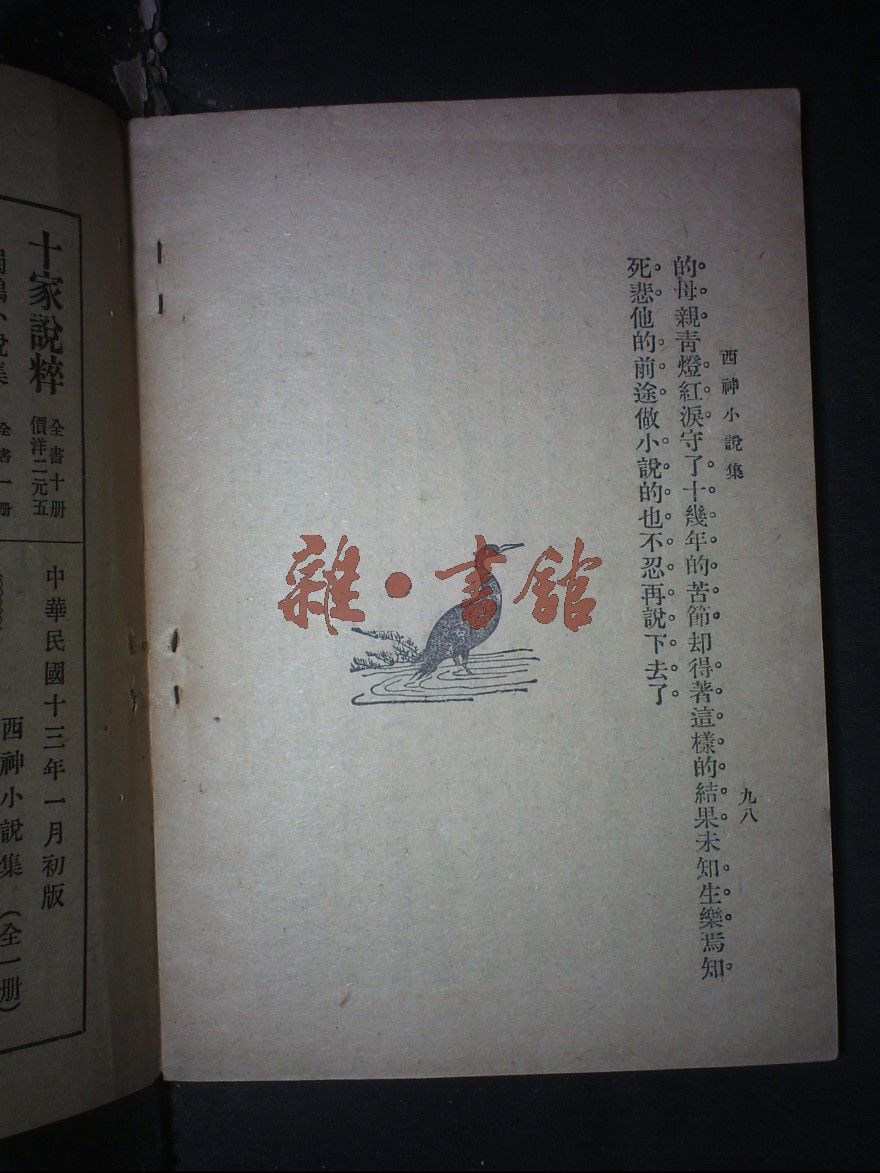 西神小說集
九八
的母親青燈紅淚守了十幾年的苦節却得著這樣的結果未知生樂焉知
死悲他的前途做小說的也不忍再說下去了
雜·書館
十家說粹
全書十册
價洋二元五
小說集
全書一册
中華民國十三年一月初版
西神小說集（全一册）